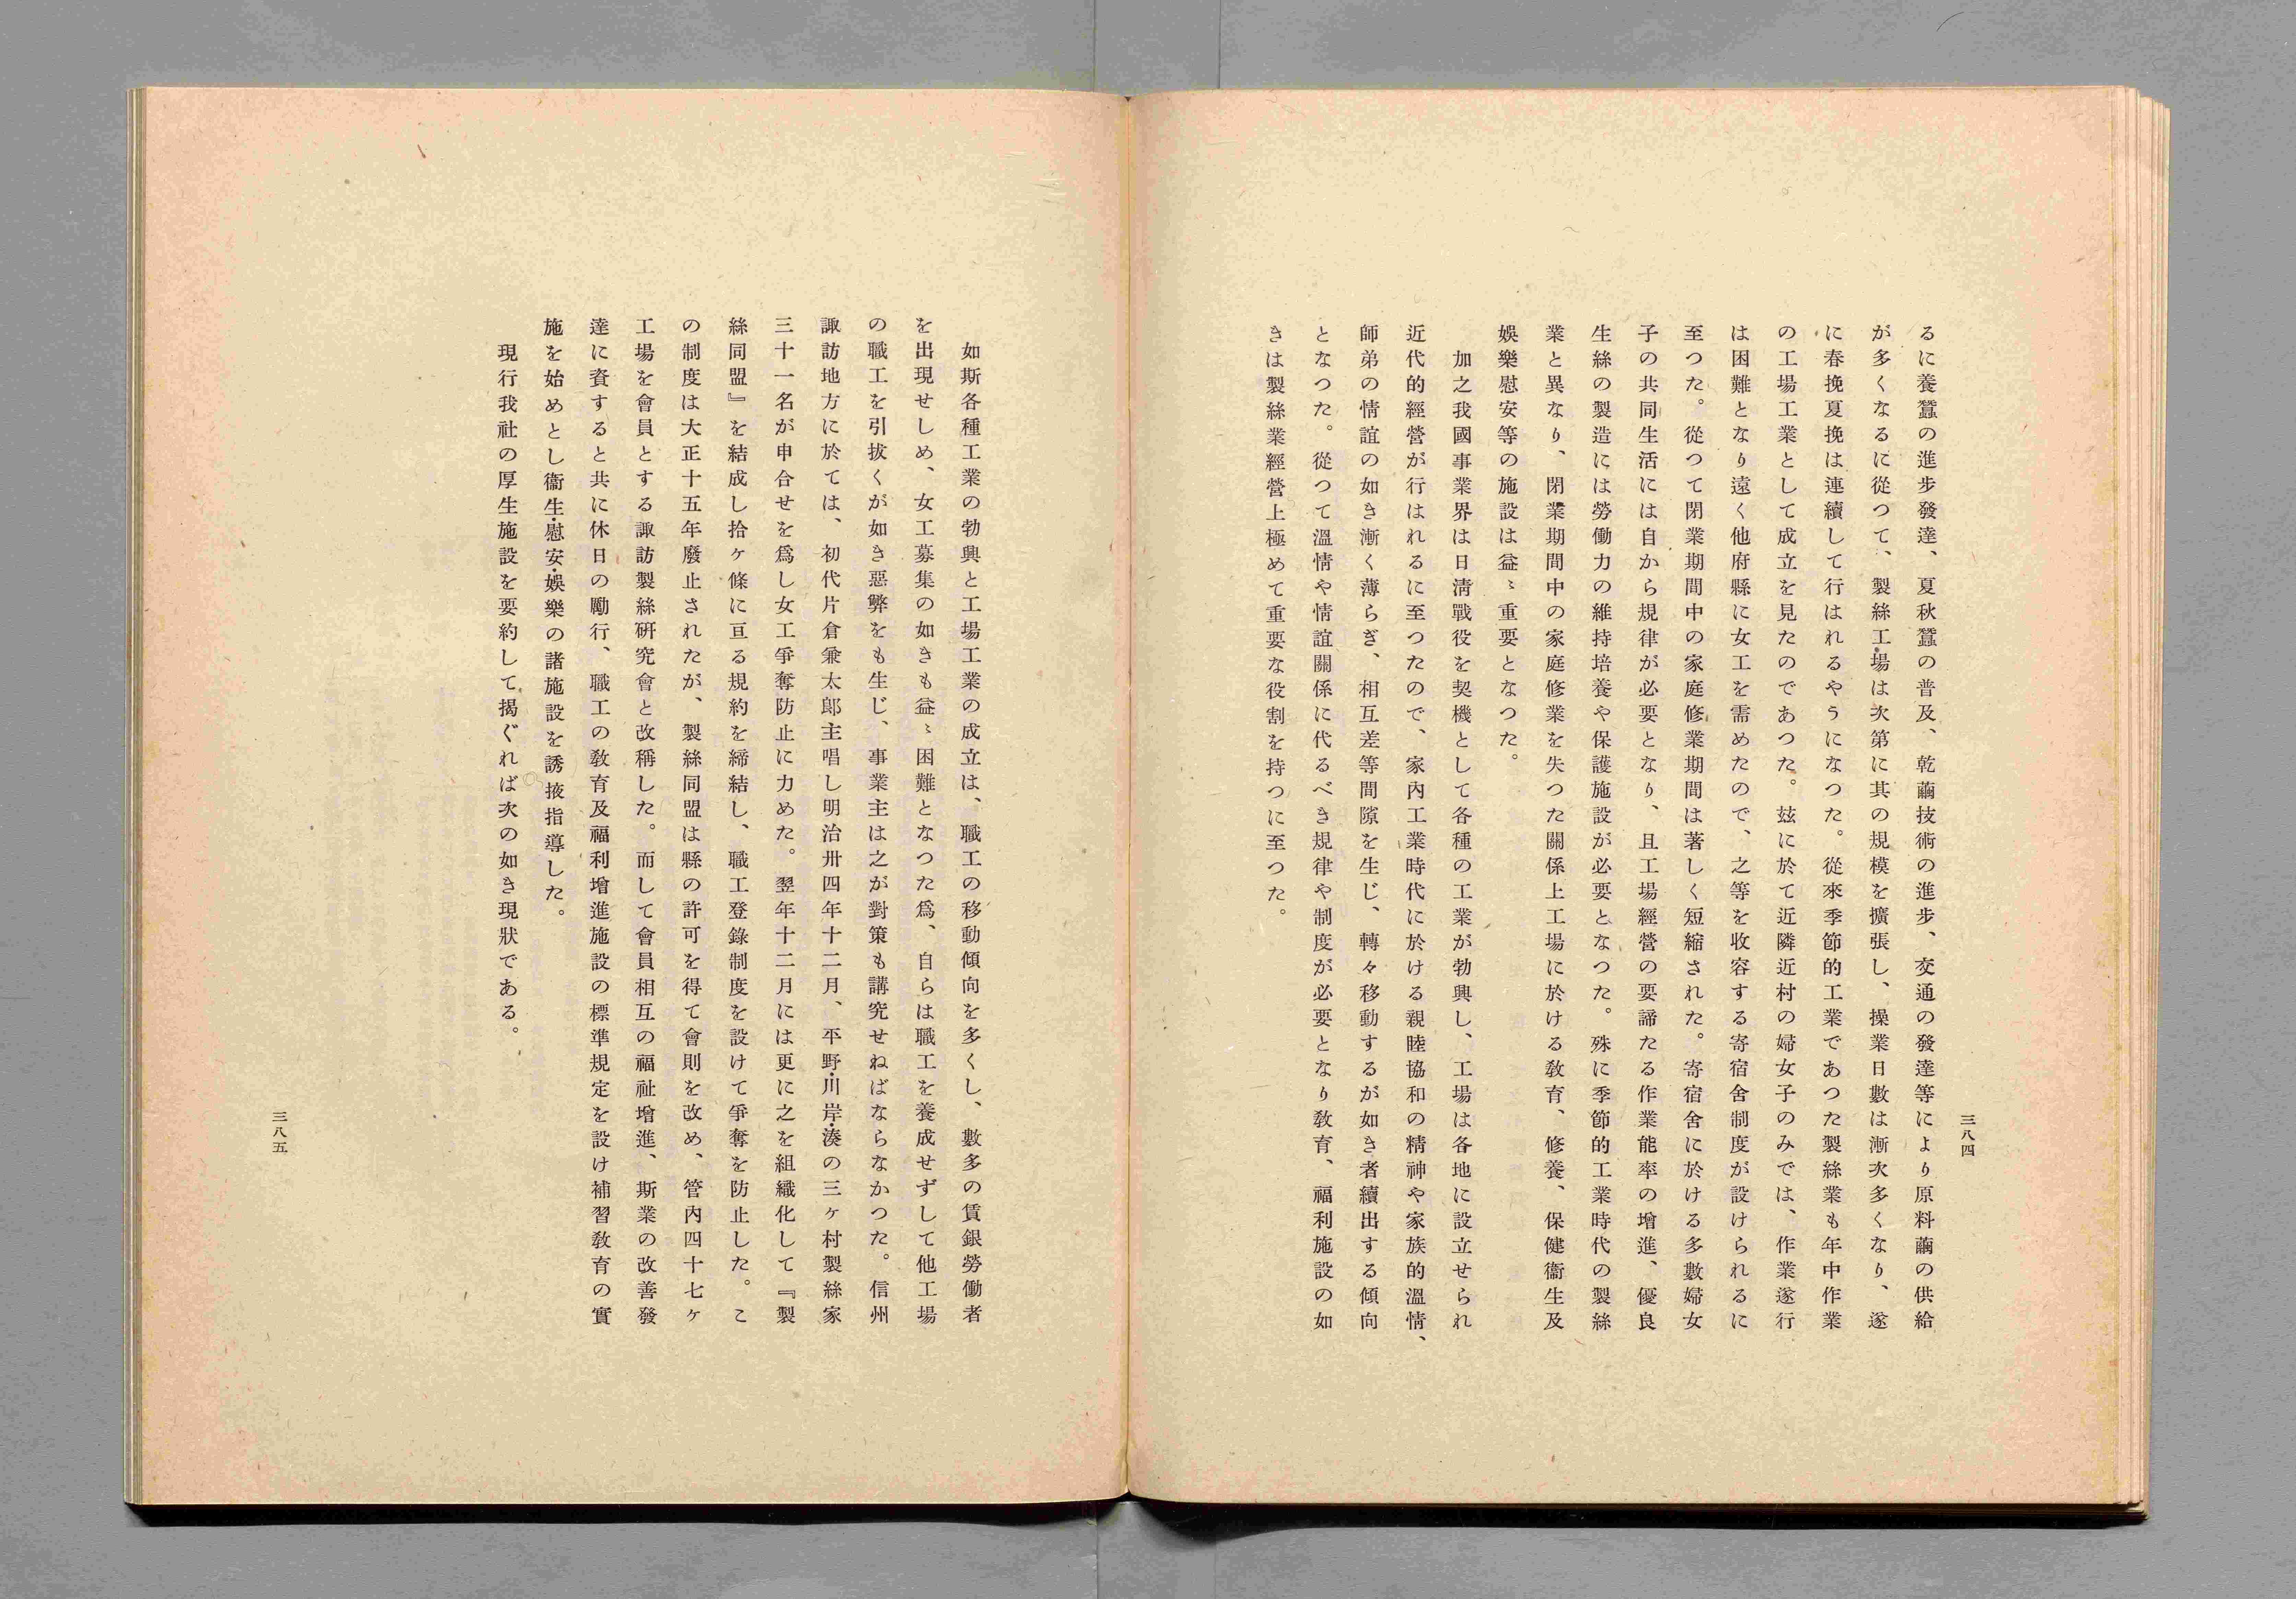 三八四
るに養蠶の進步發達、夏秋蠶の普及、乾繭技術の進步、交通の發達等により原料繭の供給
が多くなるに從つて、製絲工場は次第に其の規模を擴張し、操業日數は漸次多くなり、遂
に春挽夏挽は連續して行はれるやうになつた。從來季節的工業であつた製絲業も年中作業
の工場工業として成立を見たのであつた。玆に於て近隣近村の婦女子のみでは、作業遂行
は困難となり遠く他府縣に女工を需めたので、之等を收容する寄宿舍制度が設けられるに
至つた。從つて閉業期間中の家庭修業期間は著しく短縮された。寄宿舍に於ける多數婦女
子の共同生活には自から規律が必要となり、且工場經營の要諦たる作業能率の增進、優良
生絲の製造には勞働力の維持培養や保護施設が必要となつた。殊に季節的工業時代の製絲
業と異なり、閉業期間中の家庭修業を失つた關係上工場に於ける敎育、修養、保健衞生及
娛樂慰安等の施設は益〻重要となつた。
加之我國事業界は日淸戰役を契機として各種の工業が勃興し、工場は各地に設立せられ
近代的經營が行はれるに至つたので、家內工業時代に於ける親睦協和の精神や家族的溫情、
師弟の情誼の如き漸く薄らぎ、相互差等間隙を生じ、轉々移動するが如き者續出する傾向
となつた。從つて溫情や情誼關係に代るべき規律や制度が必要となり敎育、福利施設の如
きは製絲業經營上極めて重要な役割を持つに至つた。
如斯各種工業の勃興と工場工業の成立は、職工の移動傾向を多くし、數多の賃銀勞働者
を出現せしめ、女工募集の如きも益〻困難となつた爲、自らは職工を養成せずして他工場
の職工を引拔くが如き惡弊をも生じ、事業主は之が對策も講究せねばならなかつた。信州
諏訪地方に於ては、初代片倉兼太郞主唱し明治卅四年十二月、平野・川岸・湊の三ヶ村製絲家
三十一名が申合せを爲し女工爭奪防止に力めた。翌年十二月には更に之を組織化して『製
絲同盟』を結成し拾ヶ條に亘る規約を締結し、職工登錄制度を設けて爭奪を防止した。こ
の制度は大正十五年廢止されたが、製絲同盟は縣の許可を得て會則を改め、管內四十七ヶ
工場を會員とする諏訪製絲硏究會と改稱した。而して會員相互の福祉增進、斯業の改善發
達に資すると共に休日の勵行、職工の敎育及福利增進施設の標準規定を設け補習敎育の實
施を始めとし衞生・慰安・娛樂の諸施設を誘掖指導した。
現行我社の厚生施設を要約して揭ぐれば次の如き現狀である。
三八五